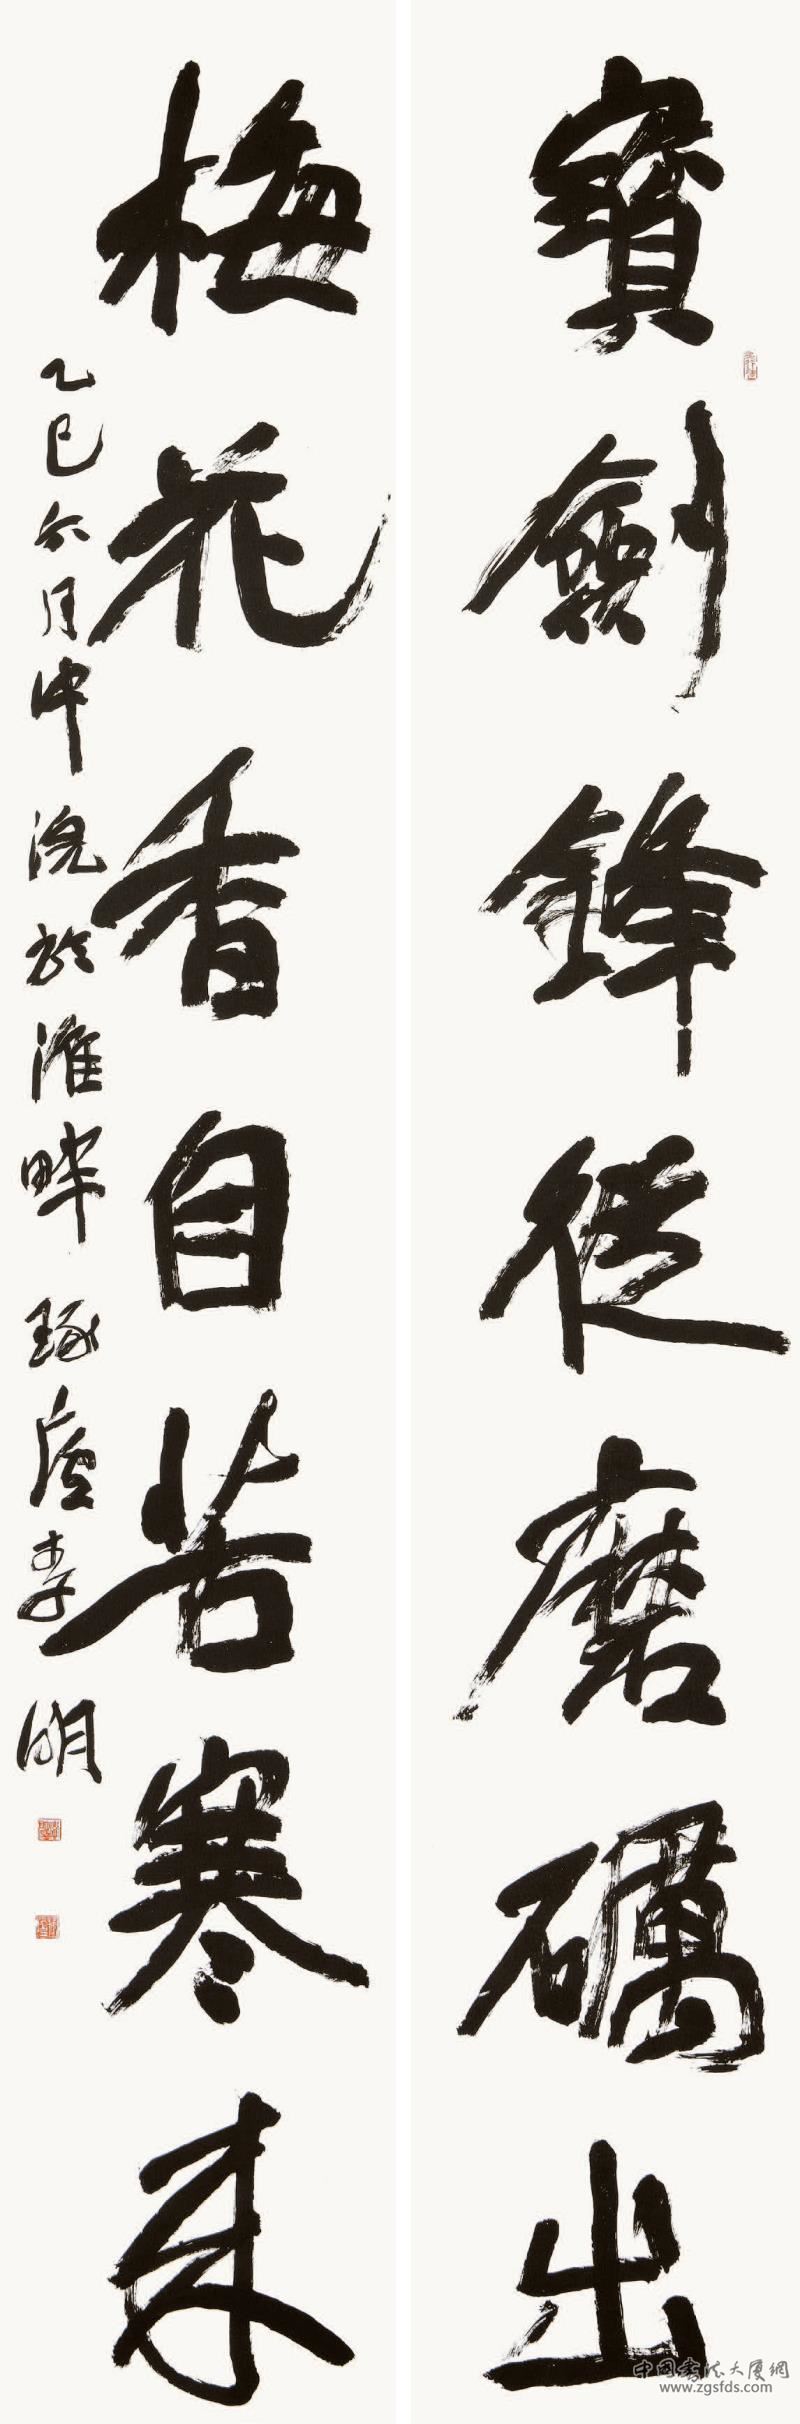 寶劍鋒從磨礪出
梅花香自苦寒來
乙巳六月中浣於淮畔琢廬李明
中国书法大厦網
www.zgsfds.com